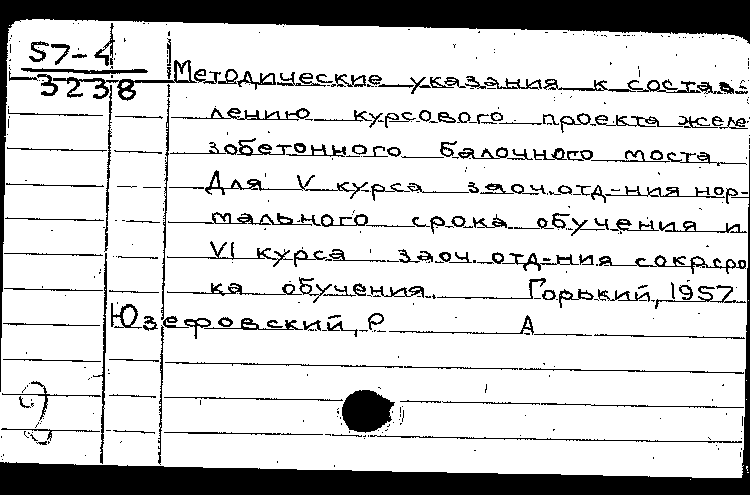 57-4
3238
Методические указания к состав-
лению курсового проекта желе
зобетонного балочного моста.
Для V курса заоч.отд-ния нор-
мального срока обучения и
VI курса заоч. отд-ния сокр.сро
ка обучения. Горький, 1957
Юзефовский, Р А
2